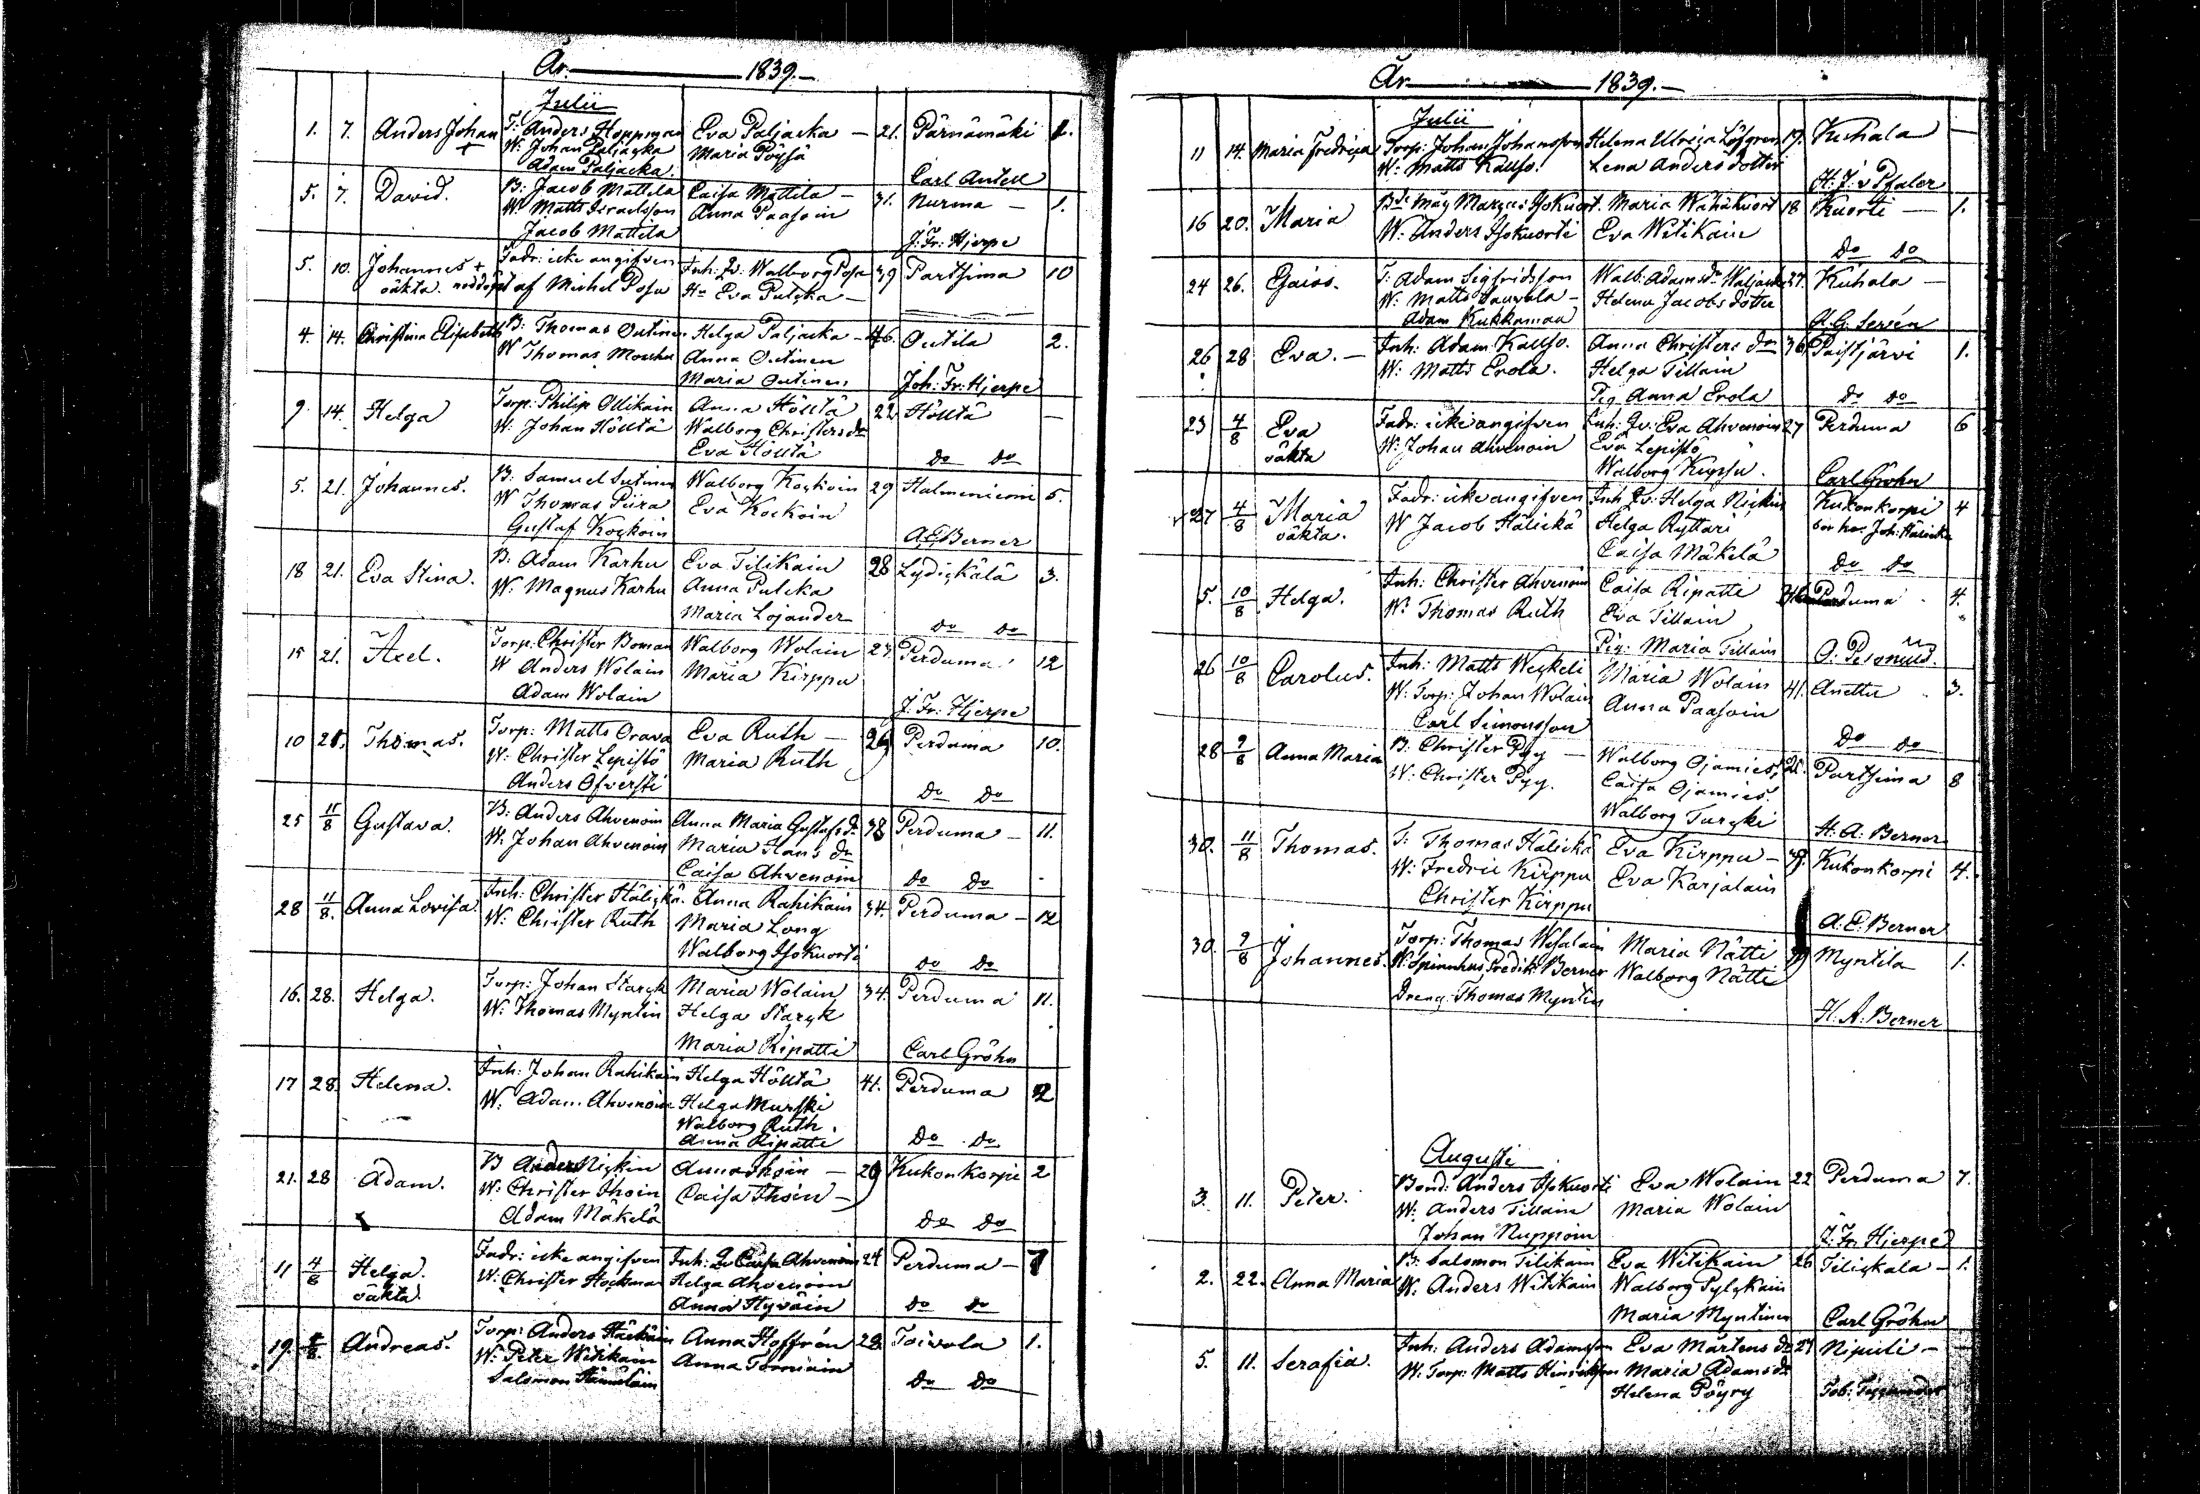 År. 1839.
Julii
1. 7. Anders Johan T: Anders Hoppman Eva Paljacka — 21. Pärnämäki 1.
+ W: Johan Paljacka Maria Pöyhä
Adam Paljacka. Carl Antell
5. 7. David. B: Jacob Mattila Caisa Mattila — 31. Nurma — 1.
W: Matts Israelsson Anna Paasoin
Jacob Mattila J: Fr: Hjerpe
5. 10. Johannes + Fadr: icke angifven Inh: Qv: Walborg Posu 39 Partsima 10
oäkta. nöddöpt af Michel Posu Ho Eva Pulcka —
4. 14. Christina Elisabeth B: Thomas Outinen Helga Paljacka — 46. Outila 2.
W Thomas Mouhu Anna Outinen
Maria Outinen Joh: Fr: Hjerpe
9. 14. Helga Torp: Philip Ollikain Anna Höltä 22. Höltä —
W: Johan Höltä Walborg Christersdr
Eva Höltä Do Do
5. 21. Johannes. B: Samuel Sutinen Walborg Kockoin 29 Halmeniemi 5.
W Thomas Piira Eva Kockoin
Gustaf Kockoin A.E. Berner
18 21. Eva Stina. B: Adam Karhu Eva Tilikain 28 Lydickälä 3.
W: Magnus Karhu Anna Pulcka
Maria Lojander Do Do
15 21. Axel. Torp: Christer Boman Walborg Wolain 27. Perduma 12
W Anders Wolain Maria Kirppu
Adam Wolain J: Fr: Hjerpe
10 21. Thomas. Torp: Matts Orava Eva Ruth — 29 Perduma 10.
W: Christer Lepistö Maria Ruth
Anders Ofversti Do Do
25 11/8 Gustava. B: Anders Ahvenoin Anna Maria Gustafsd. 38 Perduma — 11.
W: Johan Ahvenoin Maria Hans dr
Caisa Ahvenoin Do Do
28 11/8. Anna Lovisa Inh: Christer Hälickä. Anna Rahikain 34. Perduma — 12
W: Christer Ruth Maria Long
Walborg Isokuorti Do Do
16. 28. Helga. Torp: Johan Starck Maria Wolain 34. Perduma 11.
W: Thomas Myntin Helga Starck
Maria Ripatti Carl Gröhn
17 28. Helena. Inh: Johan Rahikain Helga Höltä 41. Perduma 12
W: Adam Ahvenoin Helga Murski
Walborg Ruth.
Anna Ripatti Do Do
21. 28 Adam. B Anders Nickin Anna Ihoin — 29 Kukonkorpi 2
W: Christer Ihoin Caisa Ihoin —
Adam Mäkelä Do Do
11 4/8 Helga. Fadr: icke angifven Inh: Qv Caisa Ahvenoin 24 Perduma — 7
oäkta. W: Christer Hockman Helga Ahvenoin
Anna Hyväin Do Do
19. 4/8. Andreas. Torp: Anders Anna Hoffrén 28. Toivola 1.
W: Peter Witikain Anna Torniain
Salomon Hämäläin Do Do
År 1839.
Julii
11 14. Maria Fredrica Torp: Johan Johansson Helena Ulrica Löfgren 19. Kuhala —
W: Matts Kallso. Lena Anders dotter
H: J: v Pfaler
16 20. Maria Bde: Måg Marcus Isokuort. Maria Wähäkuort 18 Kuorti — 1.
W: Anders Isokuorti Eva Witikain
Do Do
24 26. Gaios. T: Adam Sigfridsson Walb: Adamsdr 27. Kuhala —
W: Matts Helena Jacobs dotter
Adam Kukkamaa K. G. Serén
26 28 Eva. — Inh: Adam Kallso. Anna Christers dr 36 Paistjärvi 1.
W: Matts Erola. Helga Tillain
Pig. Anna Erola Do Do
23 4/8 Eva Fadr: icke angifven Inh: Qv: Eva Ahvenoin 27 Perduma 6
oäkta W: Johan Ahvenoin Eva Lepistö
Walborg Kypsu. Carl Gröhn
27 4/8 Maria Fadr: icke angifven Inh Qv: Helga Nickin Kukonkorpi 4
oäkta. W Jacob Hälickä Helga Ryttäri bor hos Joh: Hälickä
Caisa Mäkelä Do Do
5. 10/8 Helga. Inh: Christer Ahvenoin Caisa Ripatti Perduma 4.
W: Thomas Ruth Eva Tillain
Pig: Maria Tillain
26 10/8 Carolus. Inh: Matts Weckeli Maria Wolain 41. Anettu 3.
W: Torp: Johan Wolain Anna Paasoin
Carl Simonsson Do Do
28 9/8 Anna Maria B: Christer Pyy — Walborg Ojamies. 21. Partsima 8
W: Christer Pyy. Caisa Ojamies.
Walborg Turcki H: A: Berner
30. 11/8 Thomas. T: Thomas Hälickä Eva Kirppu — 39. Kukonkorpi 4.
W: Fredric Kirppu Eva Karjalain
Christer Kirppu A: E: Berner
30. 9/8 Johannes. Torp: Thomas Wesalain Maria Nätti Myntilä 1.
W: Spinnhus Predik: Berner Walborg Nätti
Dreng: Thomas Myntin H: A: Berner
Augusti
3. 11. Peter. Bond: Anders Isokuorti Eva Wolain 22 Perduma 7.
W: Anders Tillain Maria Wolain
Johan Nuppoin J: Fr: Hjerpe
2. 22. Anna Maria B: Salomon Tilikain Eva Witikain 26 Tilickala — 1.
W: Anders Witikain Walborg Pylckäin
Maria Myntinen Carl Gröhn
5. 11. Serafia. Inh: Anders Adamsson Eva Mårtens dr 27 Nipuli —
W: Torp: Matts Hinriksson Maria Adamsdr
Helena Pöyry